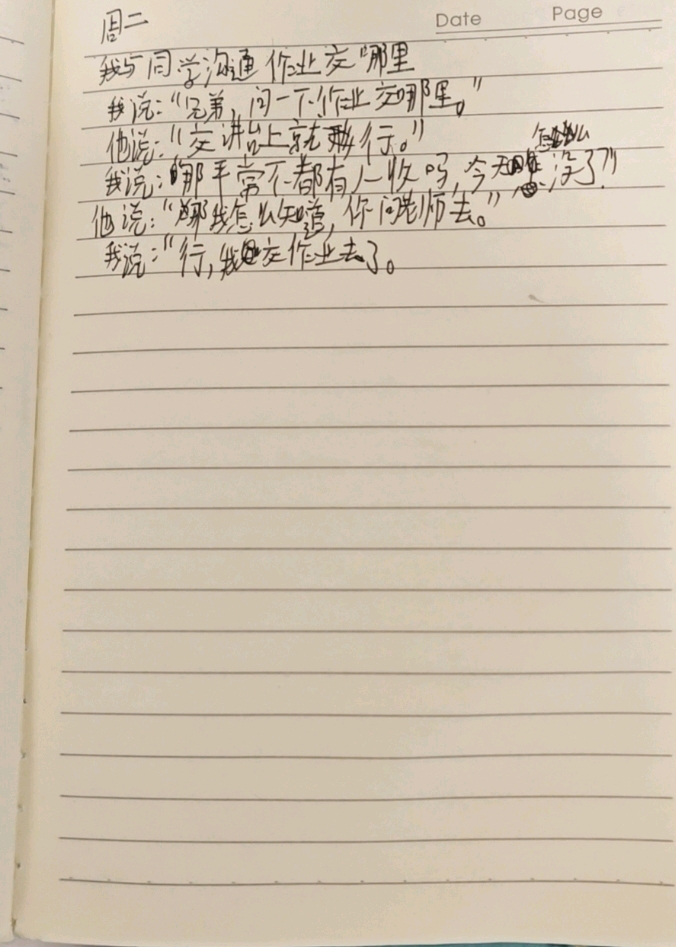 Date Page
周二
我与同学沟通作业交哪里
我说:“兄弟,问一下作业交哪里。”
他说:“交讲台上就行。”
怎么
我说:“那平常不都有人收吗,今天没了?”
他说:“那我怎么知道,你问老师去。”
我说:“行,我交作业去了。